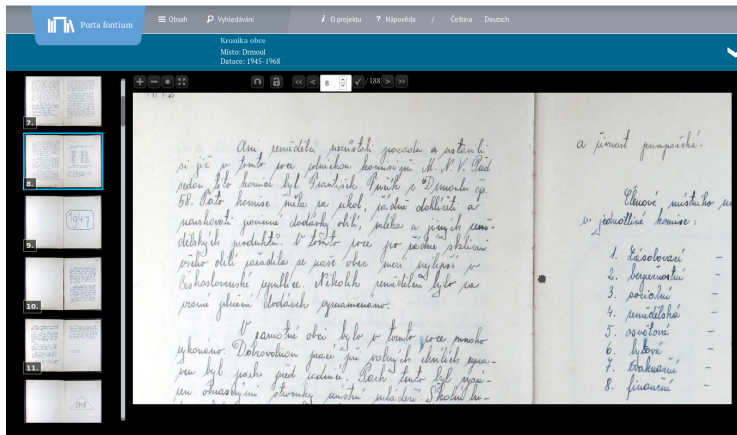 Porta fontium
Obsah
Vyhledávání
O projektu
Nápověda
/
Čeština
Deutsch
Kronika obce
Místo: Drmoul
Datace: 1945-1968
8
/ 188
7.
8.
9.
1947
10.
11.
1948
Ani zemědělci nezůstali pozadu a ustavili
si již v tomto roce rolnickou komisi při M. N. V. Před
sedou této komise byl František z Drmoulu čp.
58. Tato komise měla za úkol, řádně dohlížeti a
povinné dodávky obilí, mléka a jiných země-
dělských produktů. V tomto roce po řádné sklizni
všeho obilí zařadila se naše obec mezi nejlepší v
Československé republice. Několik zemědělců bylo za
vzorné plnění dodávek vyznamenáno.
V samotné obci bylo v tomto roce mnoho
vykonáno. Dobrovolnou prací při volných chvílích upra-
ven byl park před radnicí. Park tento byl osá-
zen okrasnými stromky místní mládeží. Školní
a živnost pumpařská.
Členové místního
v jednotlivé komise:
1. Zásobovací –
2. bezpečnostní –
3. sociální –
4. zemědělská –
5. osvětová –
6. bytová –
7. Evakuační –
8. finanční –